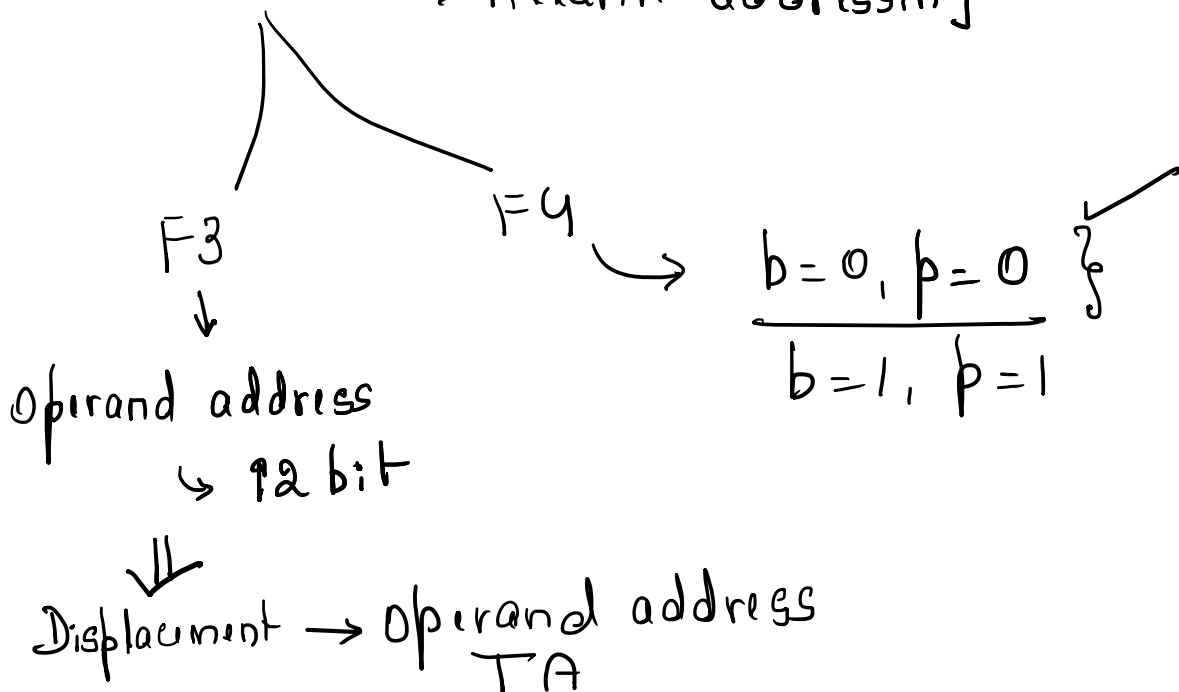 addressing
F3
F4
b=0, p=0 }
b=1, p=1
Operand address
↳ 12 bit
Displacement → Operand address
TA